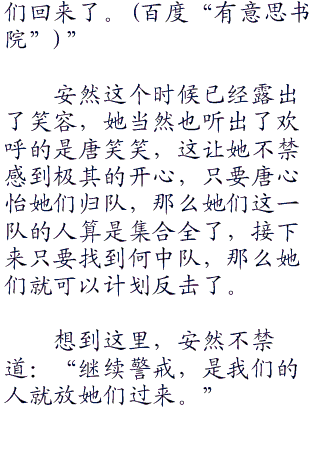 们回来了。(百度“有意思书
院”)”
安然这个时候已经露出
了笑容，她当然也听出了欢
呼的是唐笑笑，这让她不禁
感到极其的开心，只要唐心
怡她们归队，那么她们这一
队的人算是集合全了，接下
来只要找到何中队，那么她
们就可以计划反击了。
想到这里，安然不禁
道：“继续警戒，是我们的
人就放她们过来。”